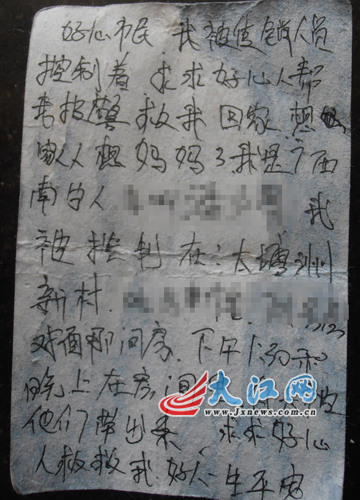 好心市民 我被传销人员
控制着 求求好心人帮
我报警 救我 回家 想
家人 想妈妈了 我是广西
南宁人 我
被控制在：大塘洲
新村
对面那间房. 下午1:30和
晚上在房间
大江网
www.jxnews.com.cn
他们带出来 求求好心
人救救我. 好人一生平安